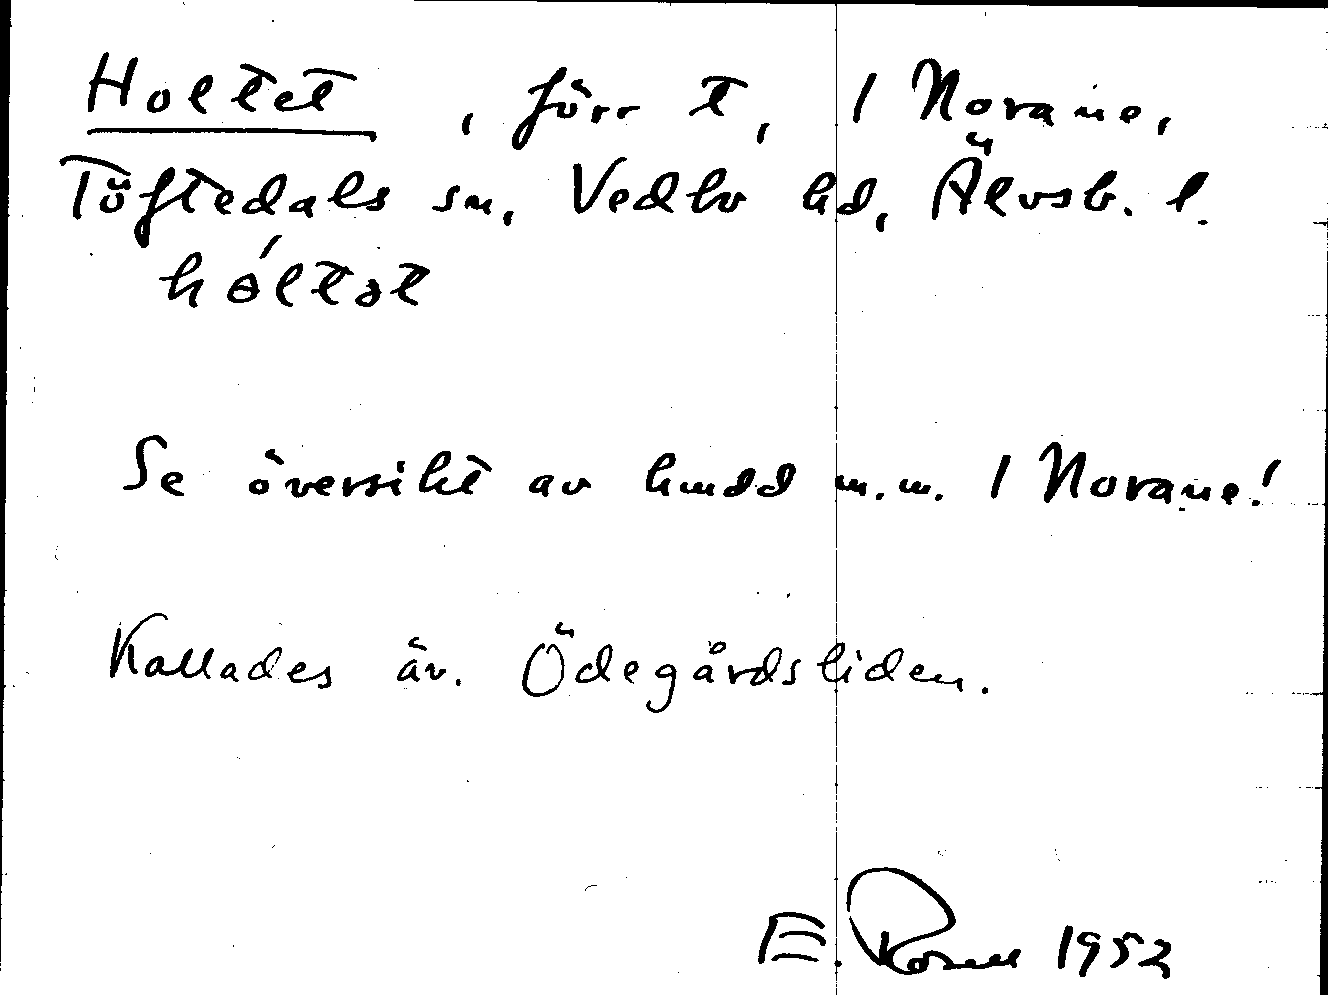 Holtet, förr t, 1 Norane,
Töftedals sn, Vedbo hd, Älvsb. l.
hóltət
Se översikt av hmdd m.m. 1 Norane!
Kallades äv. Ödegårdsliden.
E. Rosell 1952